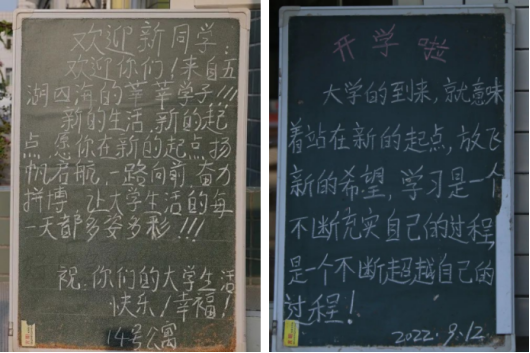 欢迎新同学:
欢迎你们!来自五
湖四海的莘莘学子!!!
新的生活,新的起
点,愿你在新的起点,扬
帆启航,一路向前,奋力
拼博,让大学生活的每
一天都多姿多彩!!!
祝:你们的大学生活
快乐!幸福!
14号公寓
开学啦
大学的到来,就意味
着站在新的起点,放飞
新的希望,学习是一个
不断充实自己的过程,
是一个不断超越自己的
过程!
2022.9.12